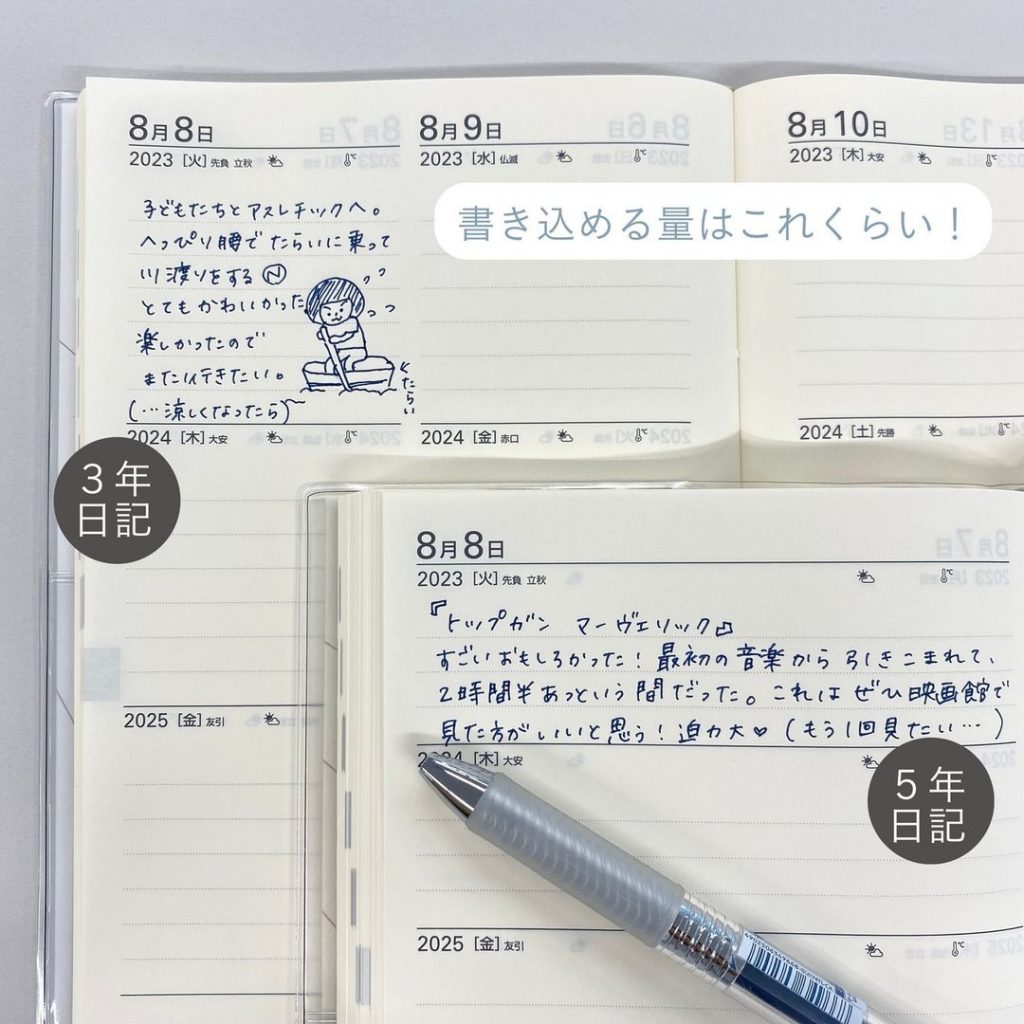 8月8日
2023 [火] 先負 立秋
℃
子どもたちとアスレチックへ。
へっぴり腰でたらいに乗って
川渡りをする Ⓝ
とてもかわいかった
楽しかったので
また行きたい。
(…涼しくなったら)
たらい
2024 [木] 大安
℃
2025 [金] 友引
8月9日
2023 [水] 仏滅
℃
2024 [金] 赤口
℃
8月10日
2023 [木] 大安
℃
2024 [土] 先勝
℃
書き込める量はこれくらい！
3年
日記
8月8日
2023 [火] 先負 立秋
℃
『トップガン マーヴェリック』
すごいおもしろかった！最初の音楽から引きこまれて、
2時間半あっという間だった。これはぜひ映画館で
見た方がいいと思う！迫力大♡(もう1回見たい…)
2024 [木] 大安
5年
日記
2025 [金] 友引
℃